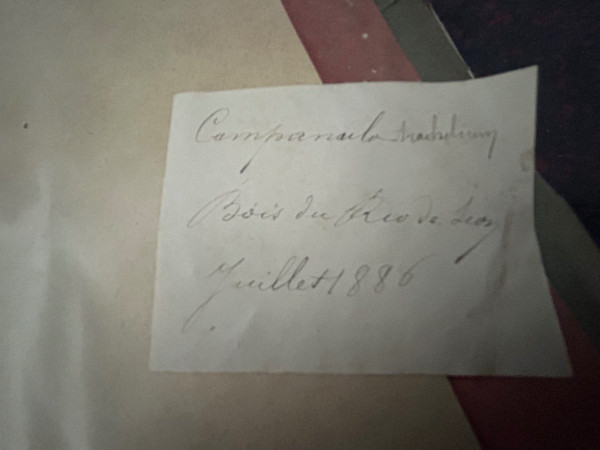 Campanula trachelium
Bois du Rieu de
Juillet 1886